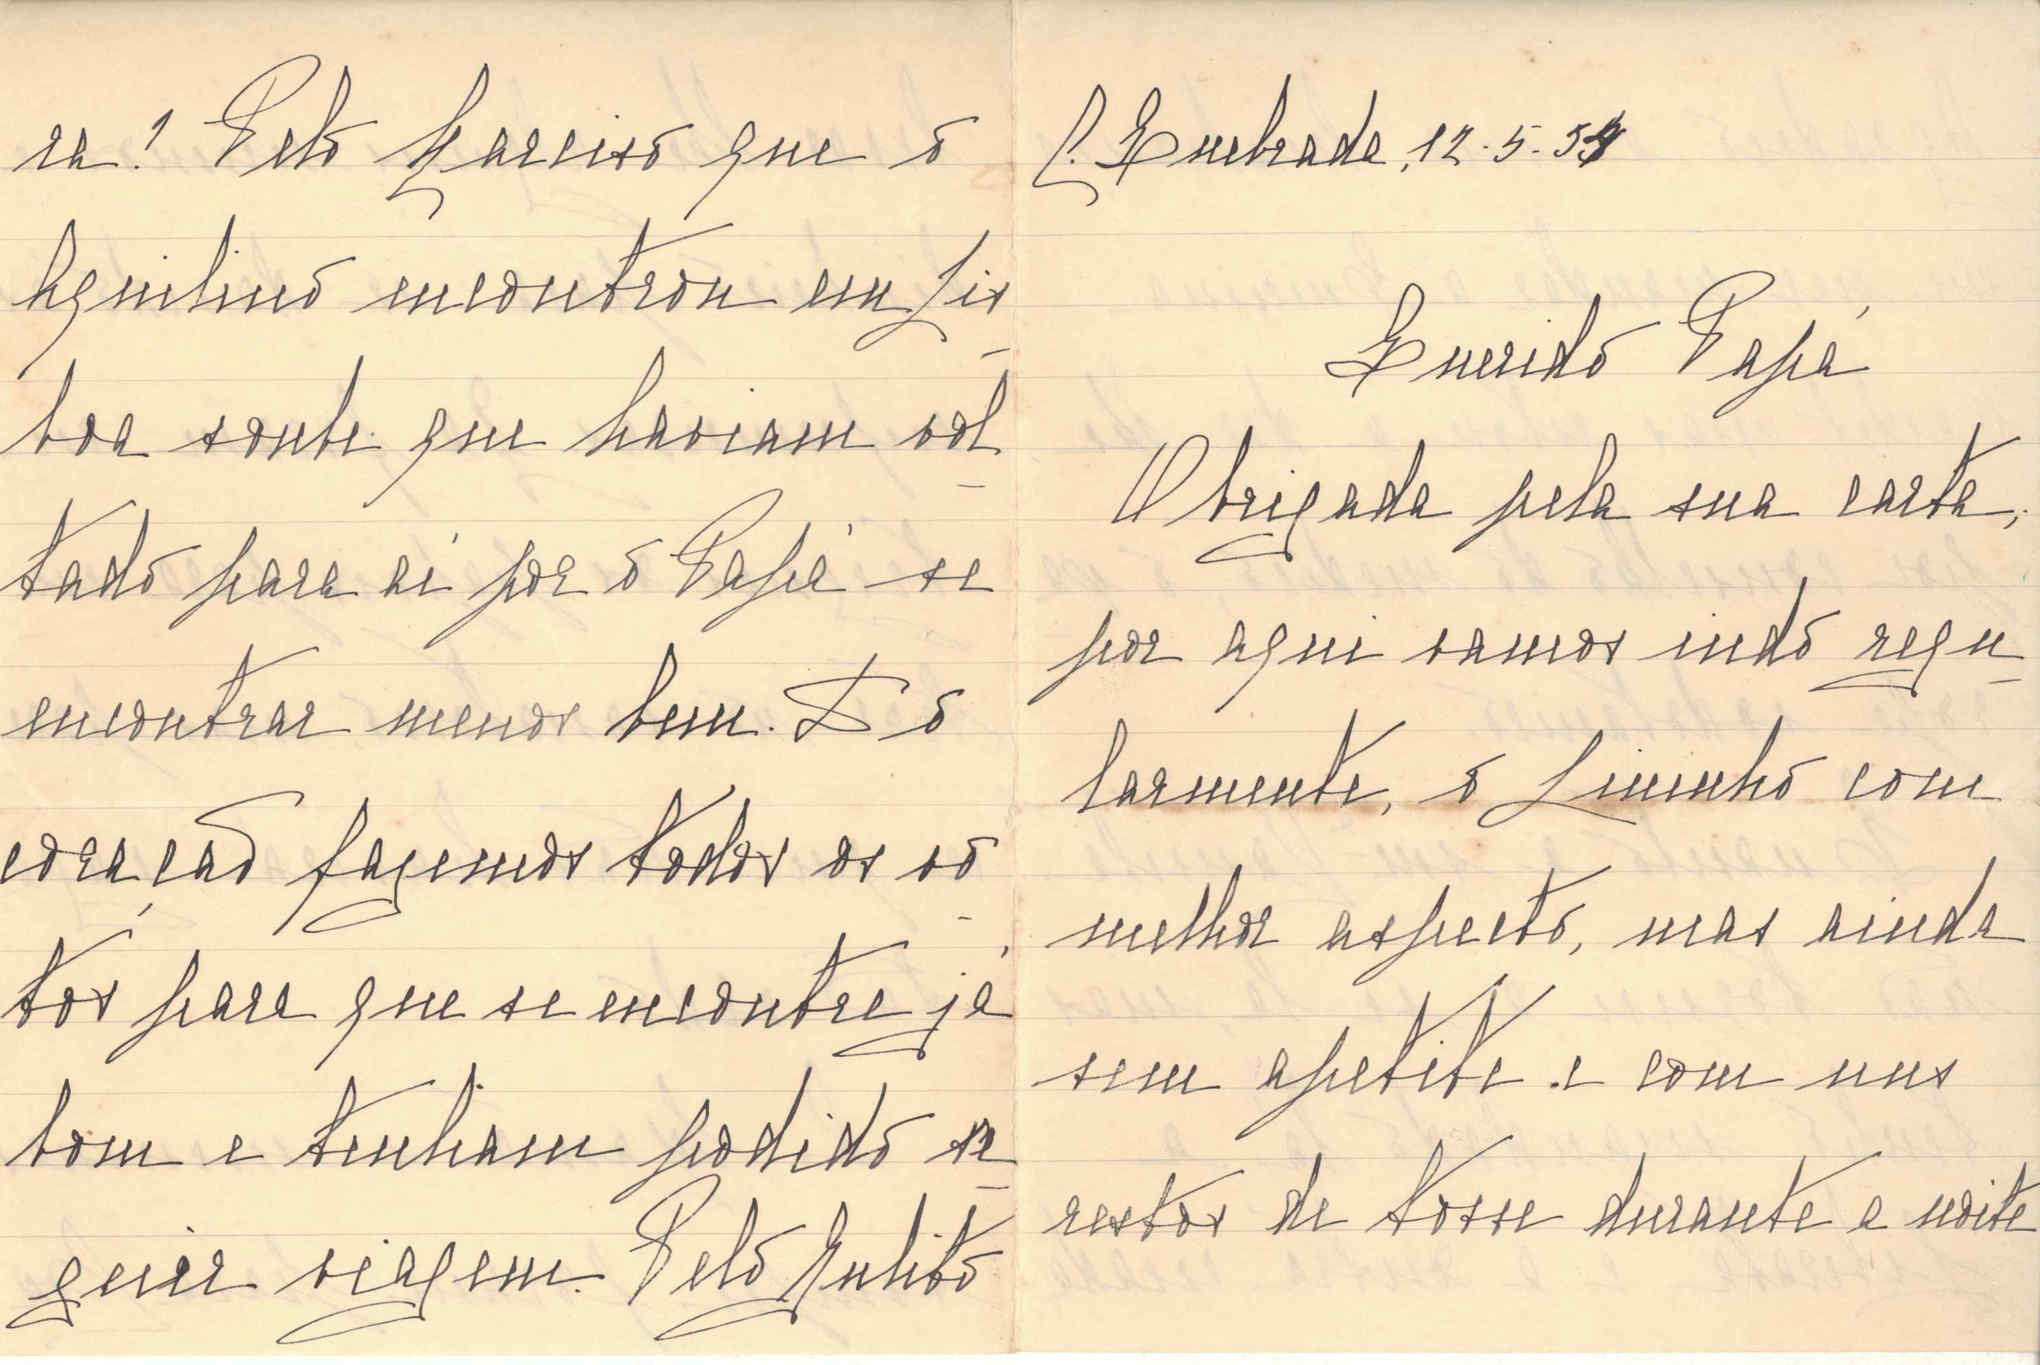 C. Quebrada, 12-5-54
Querido Papá
Obrigada pela sua carta,
por aqui vamos indo regu
larmente, o Lininho com
melhor aspecto, mas ainda
sem apetite e com uns
restos de tosse durante a noite
ra! Pelo Narciso que o
Aquilino encontrou em Lis
boa soube que haviam vol
tado para aí por o Papá se
encontrar menos bem. Do
coração fazemos todos os vo
tos para que se encontre já
bom e tenham podido se
guir viagem. Pelo Julito